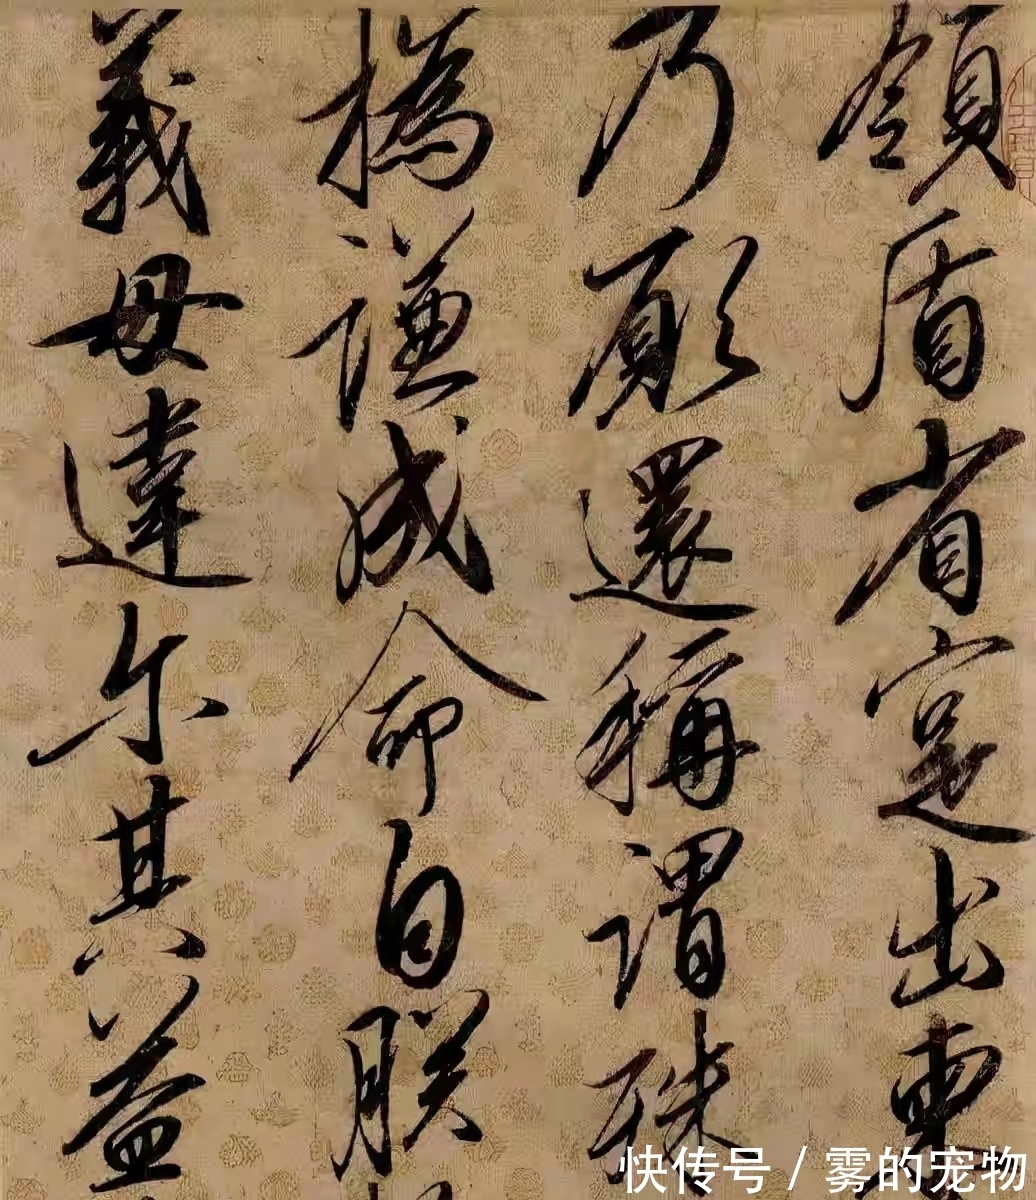 領盾省寔出東
乃顧還稱謂殊
撝謙成命自朕
義毋違尔其益
快传号 / 雾的宠物